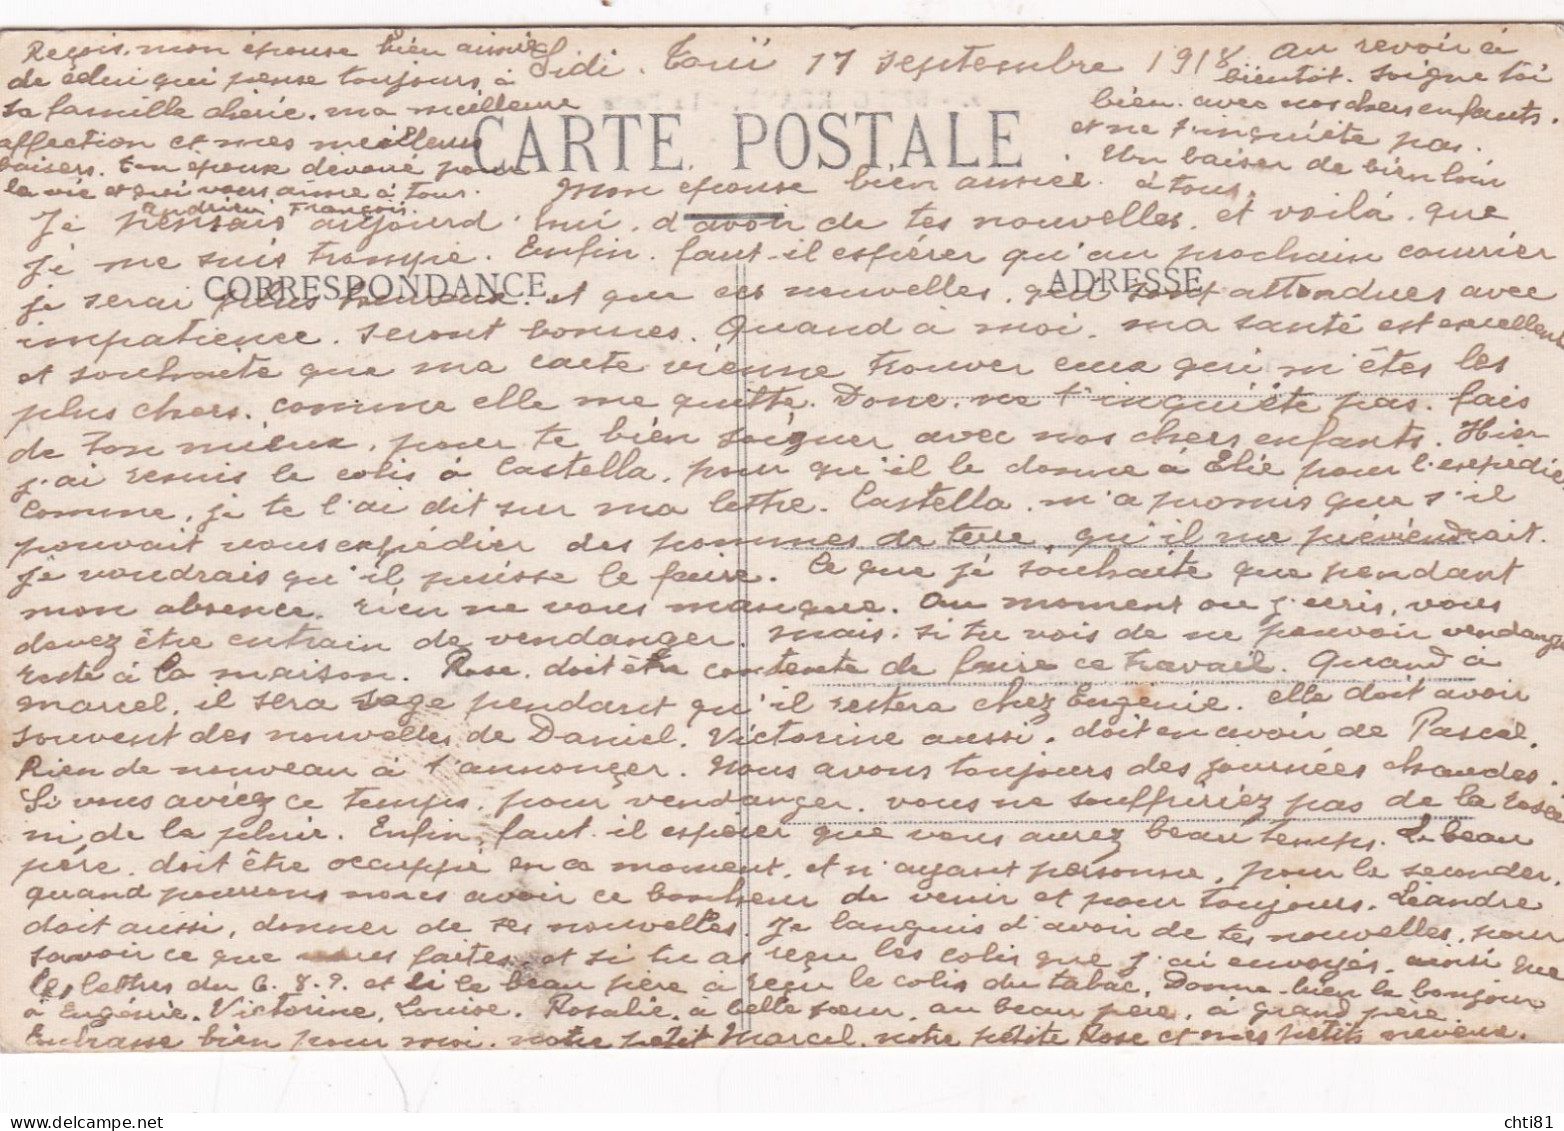 Sidi. Touï 17 septembre 1918
CARTE POSTALE
Mon épouse bien aimée.
CORRESPONDANCE
ADRESSE
Je pensais aujourd'hui, d'avoir de tes nouvelles, et voilà. que
je me suis trompé. Enfin. faut-il espérer qu'au prochain courrier
je serai plus heureux. et que ces nouvelles, qui sont attendues avec
impatience. seront bonnes. Quand à moi. ma santé est excellente
et souhaite que ma carte vienne trouver ceux qui m'êtes les
plus chers. comme elle me quitte. Donc. ne t'inquiète pas. fais
de ton mieux, pour te bien soigner avec nos chers enfants. Hier
j'ai remis le colis à Castella, pour qu'il le donne à Elie pour l'expédier
Comme, je te l'ai dit sur ma lettre. Castella. m'a promis que s'il
pouvait vous expédier des pommes de terre, qu'il me préviendrait.
je voudrais qu'il puisse le faire. Ce que je souhaite que pendant
mon absence. rien ne vous manque. Au moment ou j'ecris, vous
devez être entrain de vendanger. Mais. si tu vois de ne pouvoir vendanger
reste à la maison. Rose. doit être contente de faire ce travail. Quand à
Marcel, il sera sage pendant qu'il restera chez Eugénie. elle doit avoir
souvent des nouvelles de Daniel. Victorine aussi. doit en avoir de Pascal.
Rien de nouveau à t'annonçer. Nous avons toujours des journées chaudes.
Si vous aviez ce temps, pour vendanger, vous ne souffririez pas de la rosée
ni de la pluie. Enfin, faut-il espérer que vous aurez beau temps. Le beau
père. doit être occuppé en ce moment, et n'ayant personne, pour le seconder.
quand pourrons nous avoir ce bonheur de venir et pour toujours. Léandre
doit aussi, donner de ses nouvelles. Je languis d'avoir de tes nouvelles, pour
savoir ce que vous faites, et si tu as reçu les colis que j'ai envoyés. ainsi que
les lettres du 6. 8. 9. et si le beau père a reçu le colis du tabac. Donne bien le bonjour
à Eugénie. Victorine, Louise. Rosalie. à belle sœur. au beau père, à grand père.
Embrasse bien pour moi. notre petit Marcel, notre petite Rose et mes petits neveux.
Reçois. mon épouse bien aimée
de celui qui pense toujours à
sa famille chérie. ma meilleure
affection et mes meilleurs
baisers. ton époux dévoué pour
la vie et qui vous aime à tous.
François.
Au revoir à
bientôt. Soigne toi
bien. avec nos chers enfants.
et ne t'inquiète pas.
Un baiser de bien loin
à tous.
chti81